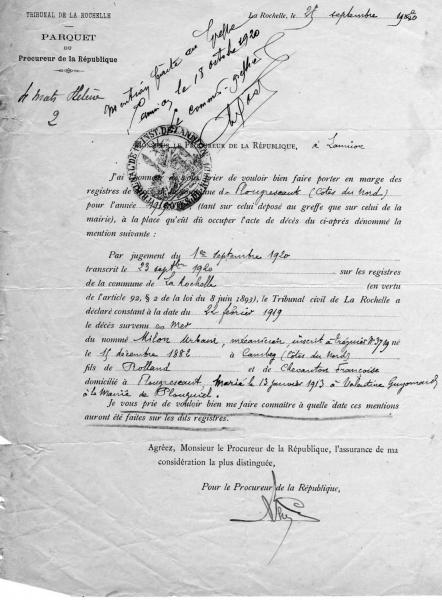 TRIBUNAL DE LA ROCHELLE
PARQUET
DU
Procureur de la République
La Rochelle, le 25 septembre 1920
4 mats Hélène
2
Mention faite au Greffe
le 18 octobre 1920
commis-greffier
LE PROCUREUR DE LA RÉPUBLIQUE, à Lannion
J'ai l'honneur de vous prier de vouloir bien faire porter en marge des
registres de la commune de Plougrescant (Côtes du Nord)
pour l'année 1919 (tant sur celui déposé au greffe que sur celui de la
mairie), à la place qu'eût dû occuper l'acte de décès du ci-après dénommé la
mention suivante :
Par jugement du 1er septembre 1920
transcrit le 23 septbre 1920 sur les registres
de la commune de La Rochelle (en vertu
de l'article 92, § 2 de la loi du 8 juin 1893), le Tribunal civil de La Rochelle a
déclaré constant à la date du 22 février 1919
le décès survenu en Mer
du nommé Milon Urbain, mécanicien, inscrit à Tréguier né
le 15 décembre 1882 à Camlez (Côtes du Nord)
fils de Rolland et de Chevanton Françoise
domicilié à Plougrescant, Marié le 13 janvier 1913 à Valentine Guyomard
à la Mairie de Plouguiel.
Je vous prie de vouloir bien me faire connaître à quelle date ces mentions
auront été faites sur les dits registres.
Agréez, Monsieur le Procureur de la République, l'assurance de ma
considération la plus distinguée,
Pour le Procureur de la République,